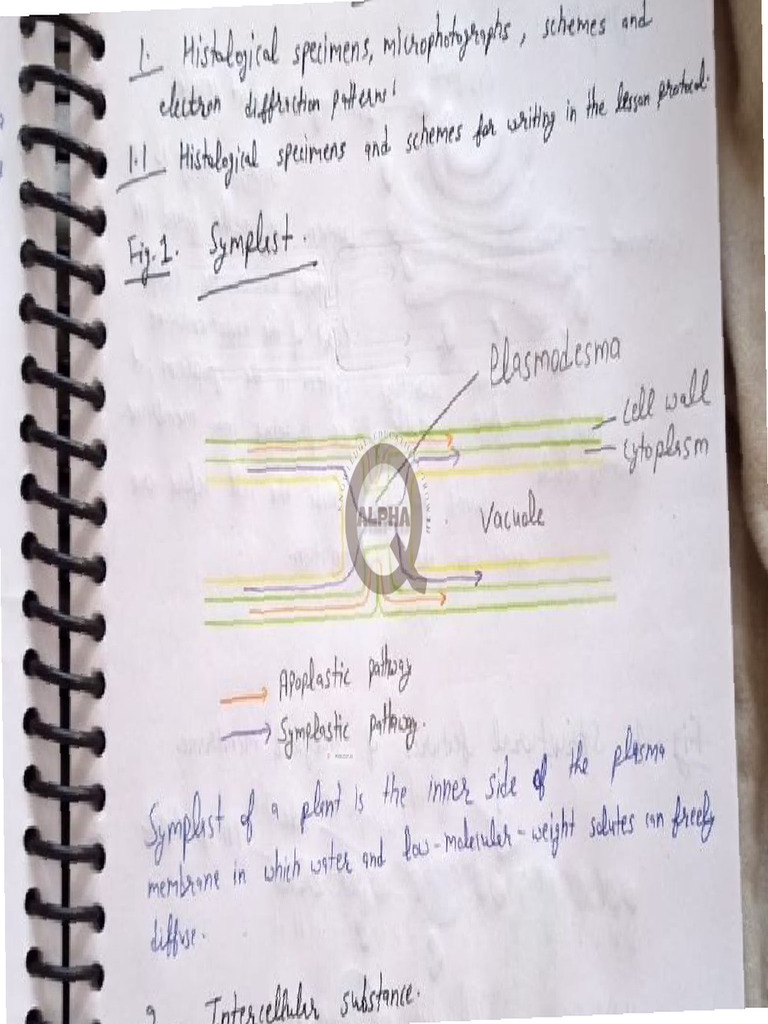 1. Histological specimens, microphotographs, schemes and
electron diffraction patterns!
1.1 Histological specimens and schemes for writing in the lesson protocol.
Fig. 1. Symplast.
Plasmodesma
Cell wall
Cytoplasm
ALPHA
Vacuole
Apoplastic pathway
Symplastic pathway.
Symplast of a plant is the inner side of the plasma
membrane in which water and low-molecular-weight solutes can freely
diffuse.
2. Intercellular substance.